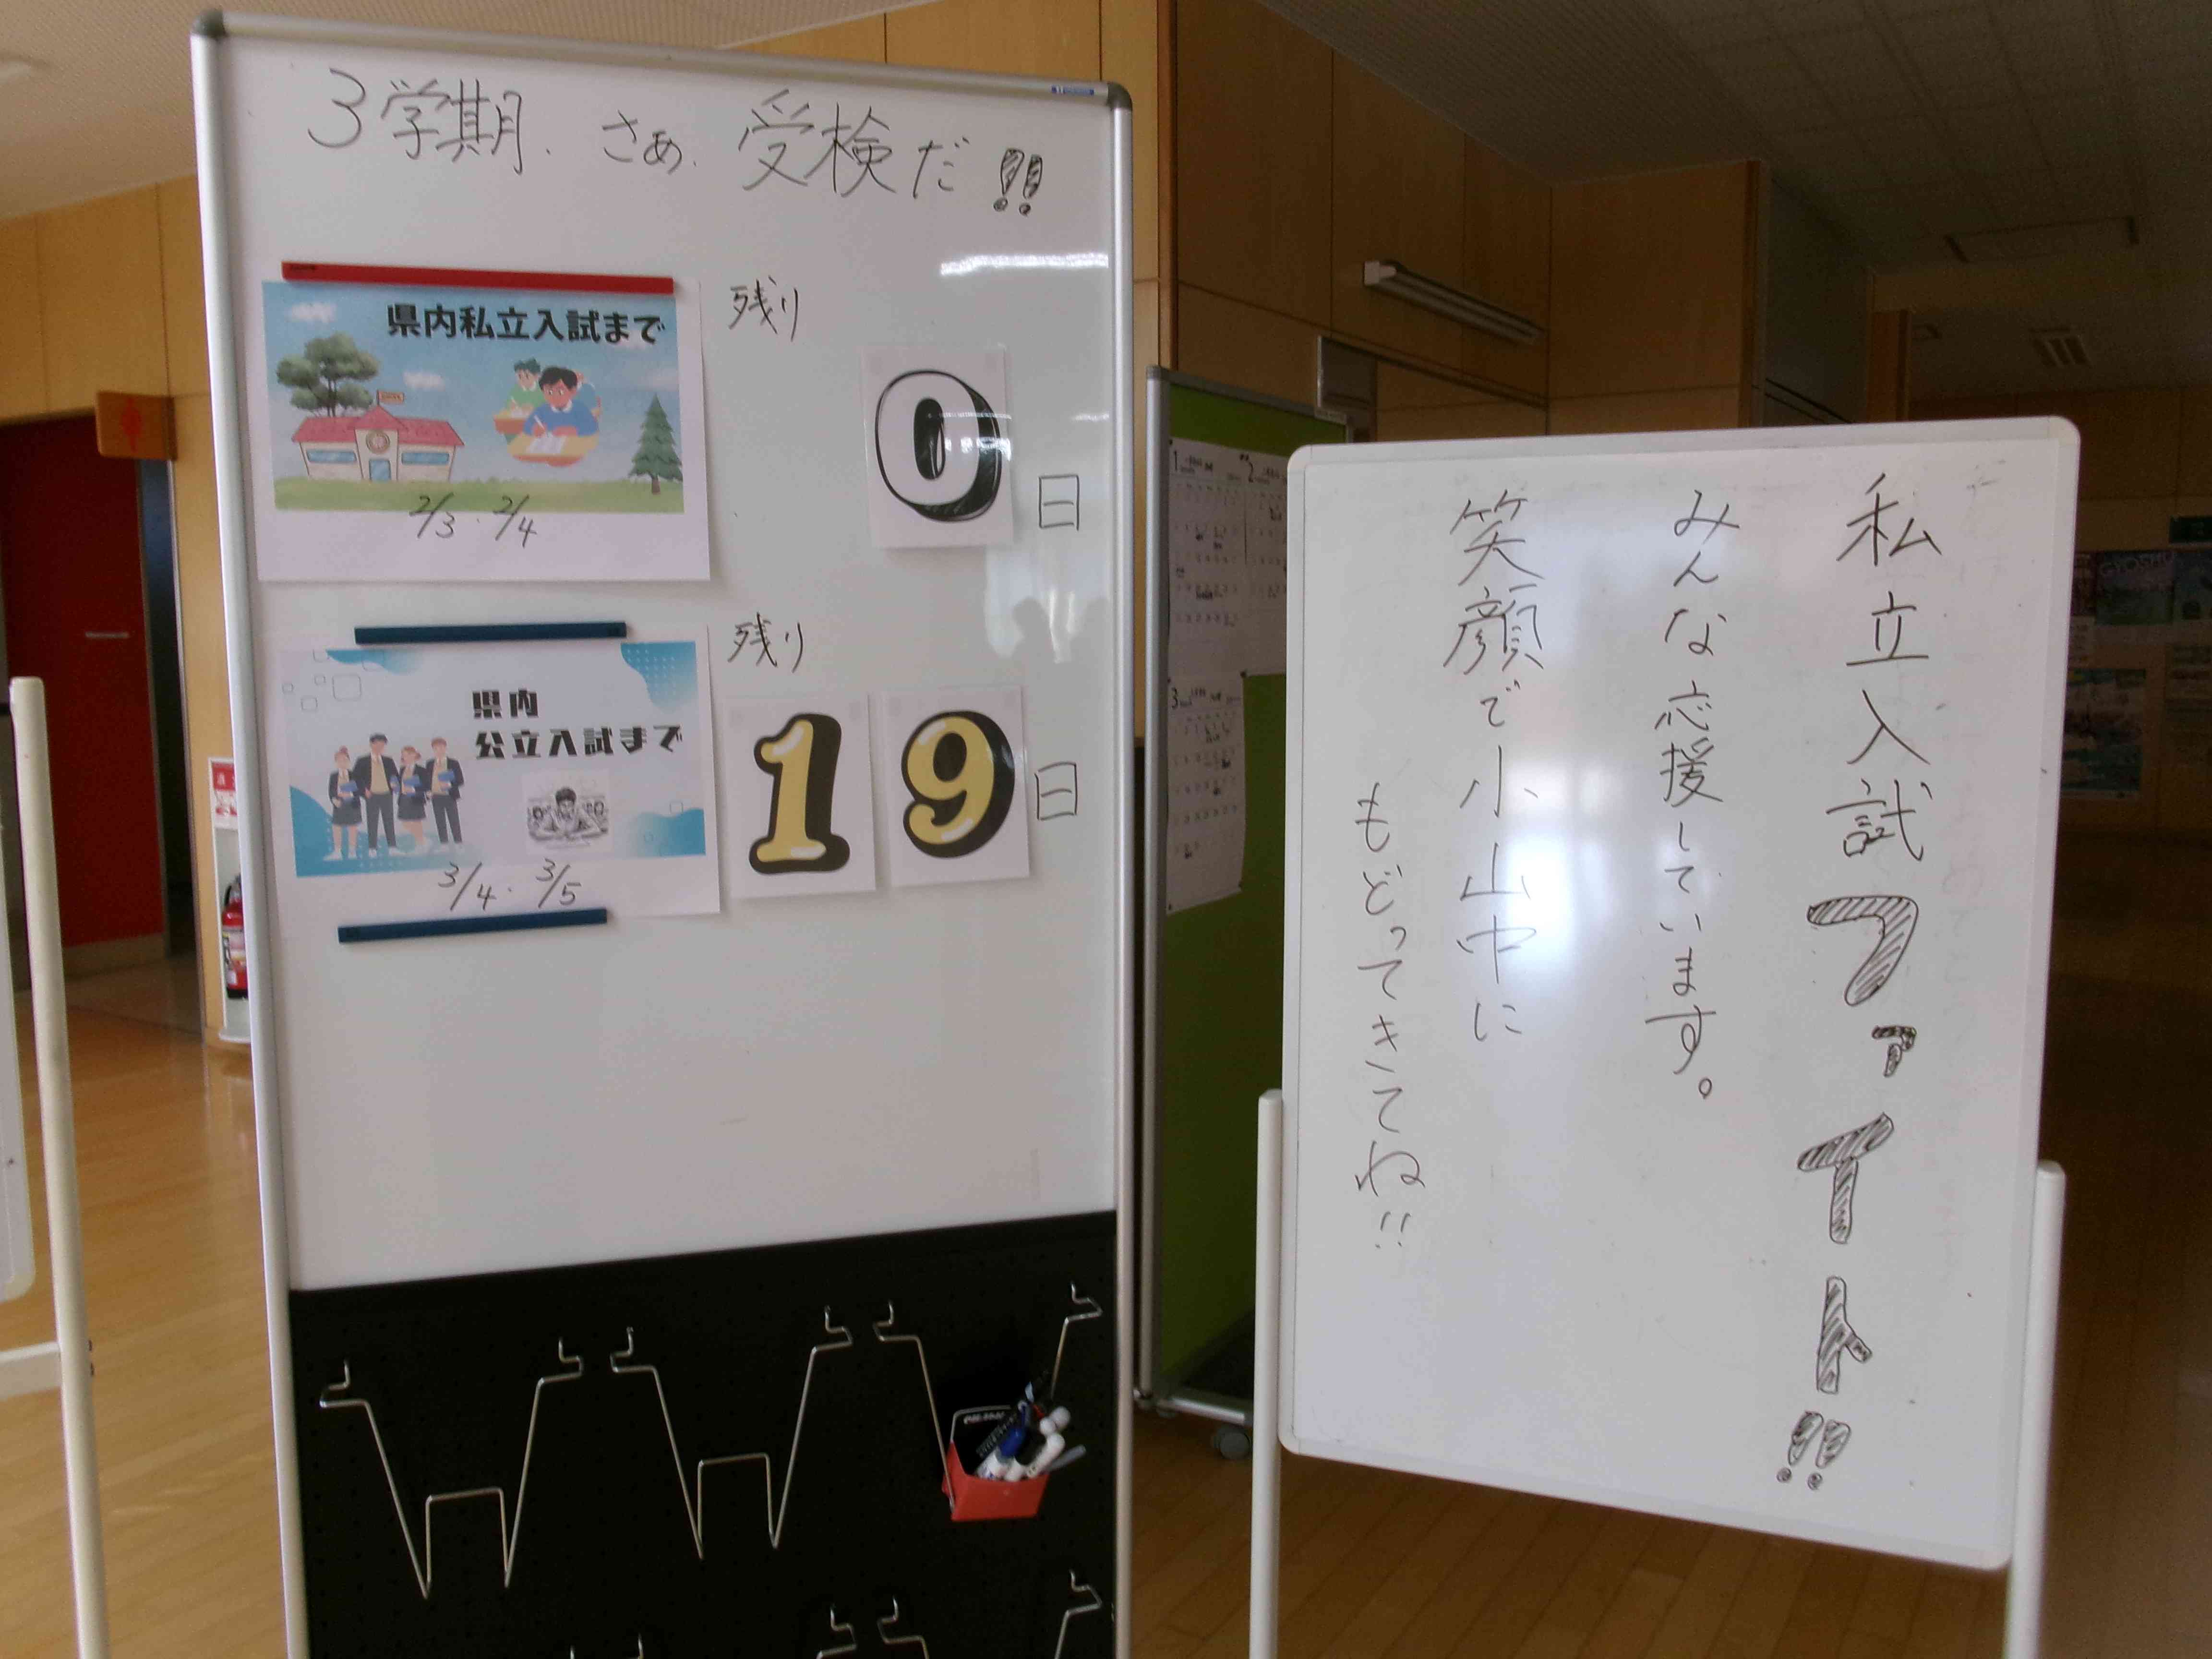 3学期、さぁ、受検だ!!
県内私立入試まで
2/3・2/4
残り
0日
県内
公立入試まで
3/4・3/5
残り
19日
私立入試ファイト!!
みんな応援しています。
笑顔で小山中に
もどってきてね!!
1
2
3